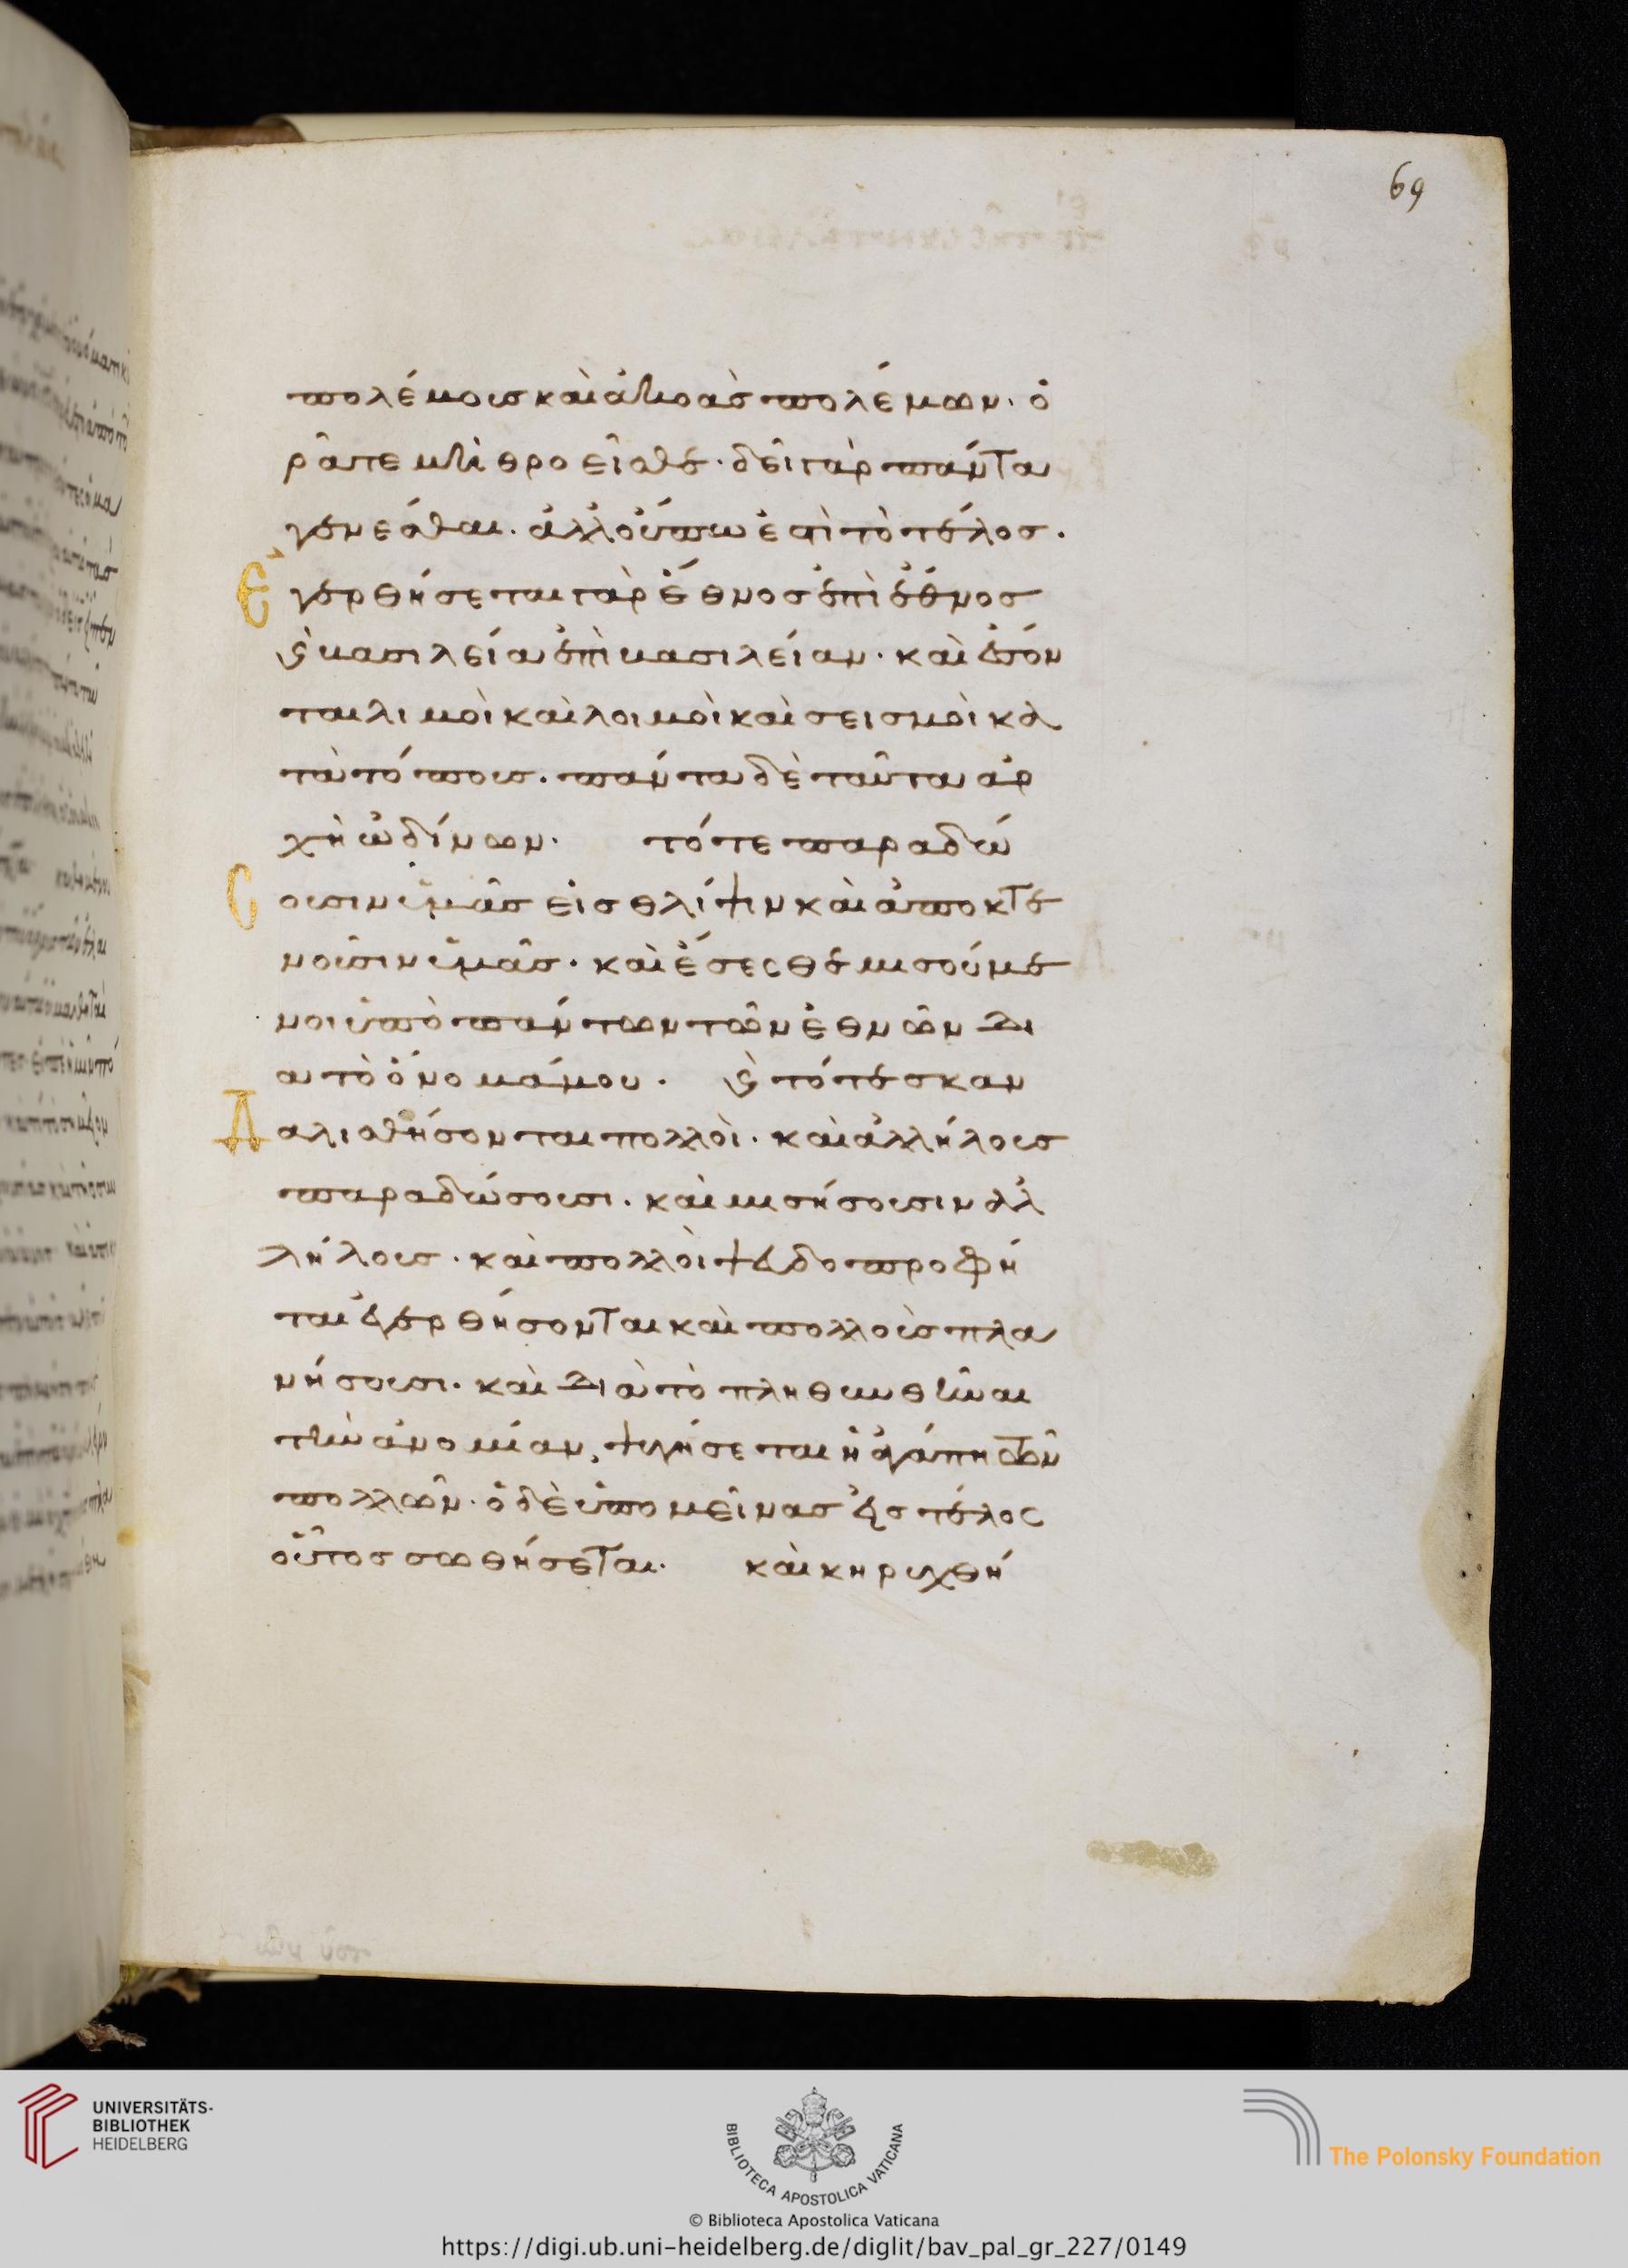 69
πολέμους καὶ ἀκοὰς πολέμων· ὁ
ρᾶτε μὴ θροεῖσθε· δεῖ γὰρ πάντα
γενέσθαι· ἀλλ' οὔπω ἐστὶ τὸ τέλος·
Ἐγερθήσεται γὰρ ἔθνος ἐπὶ ἔθνος
ϗ βασιλεία ἐπὶ βασιλείαν· καὶ ἔσον
ται λιμοὶ καὶ λοιμοὶ καὶ σεισμοὶ κα
τὰ τόπους· πάντα δὲ ταῦτα ἀρ
χὴ ὠδίνων· τότε παραδώ
Σουσιν ὑμᾶς εἰς θλίψιν καὶ ἀποκτε
νοῦσιν ὑμᾶς· καὶ ἔσεσθε μισούμε
νοι ὑπὸ πάντων τῶν ἐθνῶν δι
α τὸ ὄνομά μου· ϗ τότε σκαν
Δαλισθήσονται πολλοὶ· καὶ ἀλλήλους
παραδώσουσι· καὶ μισήσουσιν ἀλ
λήλους· καὶ πολλοὶ ψευδοπροφή
ται ἐγερθήσονται καὶ πολλοὺς πλα
νήσουσι· καὶ διὰ τὸ πληθυνθῆναι
τὴν ἀνομίαν, ψυγήσεται ἡ ἀγάπη τῶν
πολλῶν· ὁ δὲ ὑπομείνας εἰς τέλος
οὗτος σωθήσεται· καὶ κηρυχθή
UNIVERSITÄTS-
BIBLIOTHEK
HEIDELBERG
BIBLIOTECA APOSTOLICA VATICANA
The Polonsky Foundation
© Biblioteca Apostolica Vaticana
https://digi.ub.uni-heidelberg.de/diglit/bav_pal_gr_227/0149